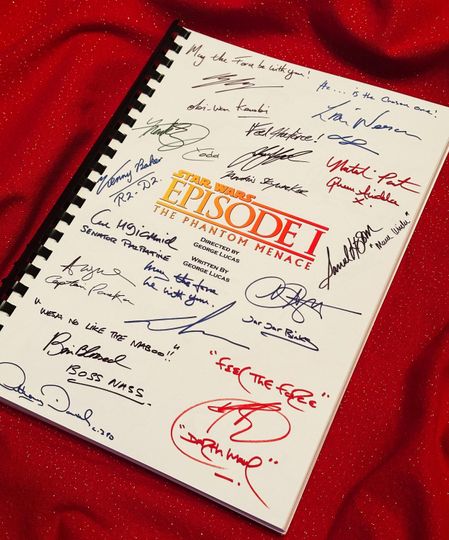 May the Force be with you!
He.... is the chosen one!
Obi-Wan Kenobi
Liam Neeson
Feel the force!
Todd
Kenny Baker
R2-D2
Anakin Skywalker
Natalie Port
Queen Amidala
x
STAR WARS
EPISODE I
THE PHANTOM MENACE
DIRECTED BY
GEORGE LUCAS
WRITTEN BY
GEORGE LUCAS
"Mace Windu"
SENATOR PALPATINE
Captain Panaka
May the force
be with you.
Jar Jar Binks
"WESA NO LIKE THE NABOO!!"
Brian Blessed
BOSS NASS
"FEEL THE FORCE"
"DARTH MAUL"
Anthony Daniels
C-3PO